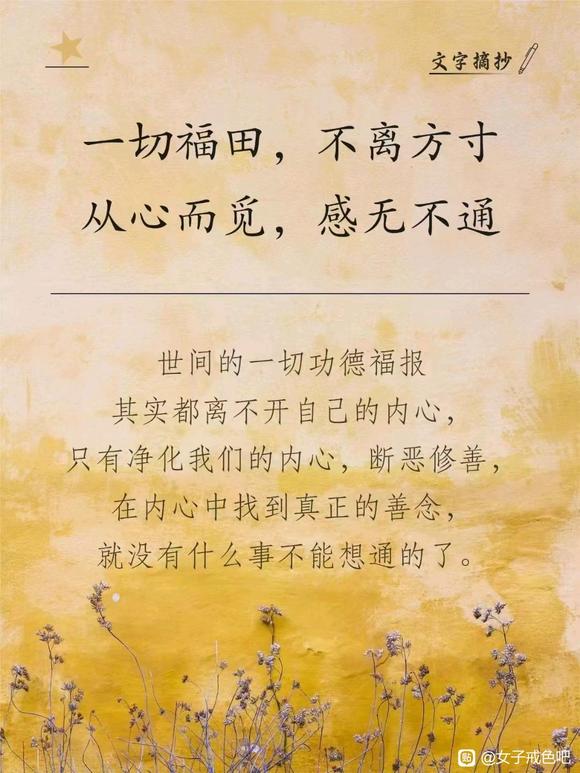 文字摘抄
一切福田，不离方寸
从心而觅，感无不通
世间的一切功德福报
其实都离不开自己的内心，
只有净化我们的内心，断恶修善，
在内心中找到真正的善念，
就没有什么事不能想通的了。
贴 @女子戒色吧